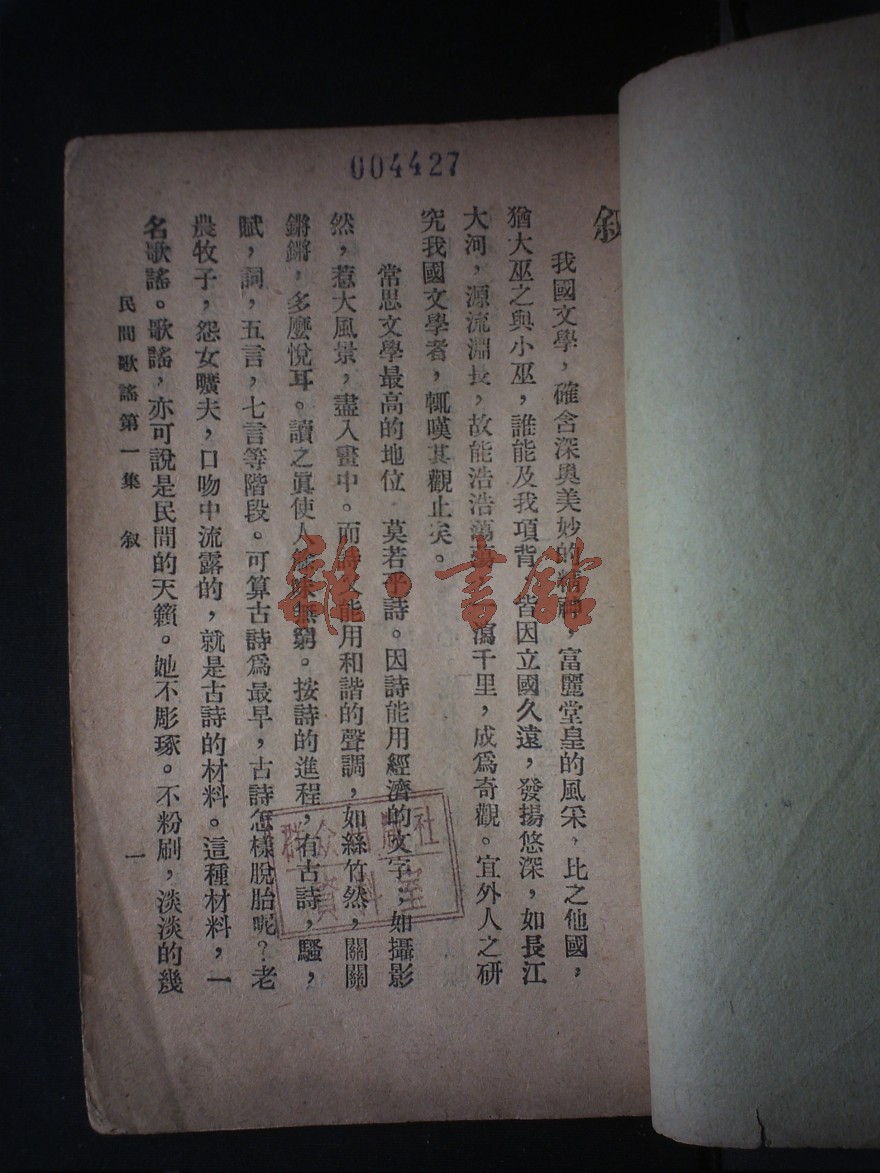 004427
叙
我國文學，確含深奥美妙的精神，富麗堂皇的風采，比之他國，
猶大巫之與小巫，誰能及我項背 皆因立國久遠，發揚悠深，如長江
大河，源流淵長，故能浩浩蕩蕩，瀉千里，成爲奇觀。宜外人之研
究我國文學者，輒嘆其觀止矣。
常思文學最高的地位 莫若乎詩。因詩能用經濟的文字，如攝影
然，惹大風景，盡入畫中。而詩又能用和諧的聲調，如絲竹然，關關
鏘鏘，多麼悅耳。讀之眞使人餘味無窮。按詩的進程，有古詩，騷，
賦，詞，五言，七言等階段。可算古詩爲最早，古詩怎樣脫胎呢？老
農牧子，怨女曠夫，口吻中流露的，就是古詩的材料。這種材料，一
名歌謠。歌謠，亦可說是民間的天籟。她不彫琢。不粉刷，淡淡的幾
民間歌謠第一集 叙 一
雜·書館
社
資料室